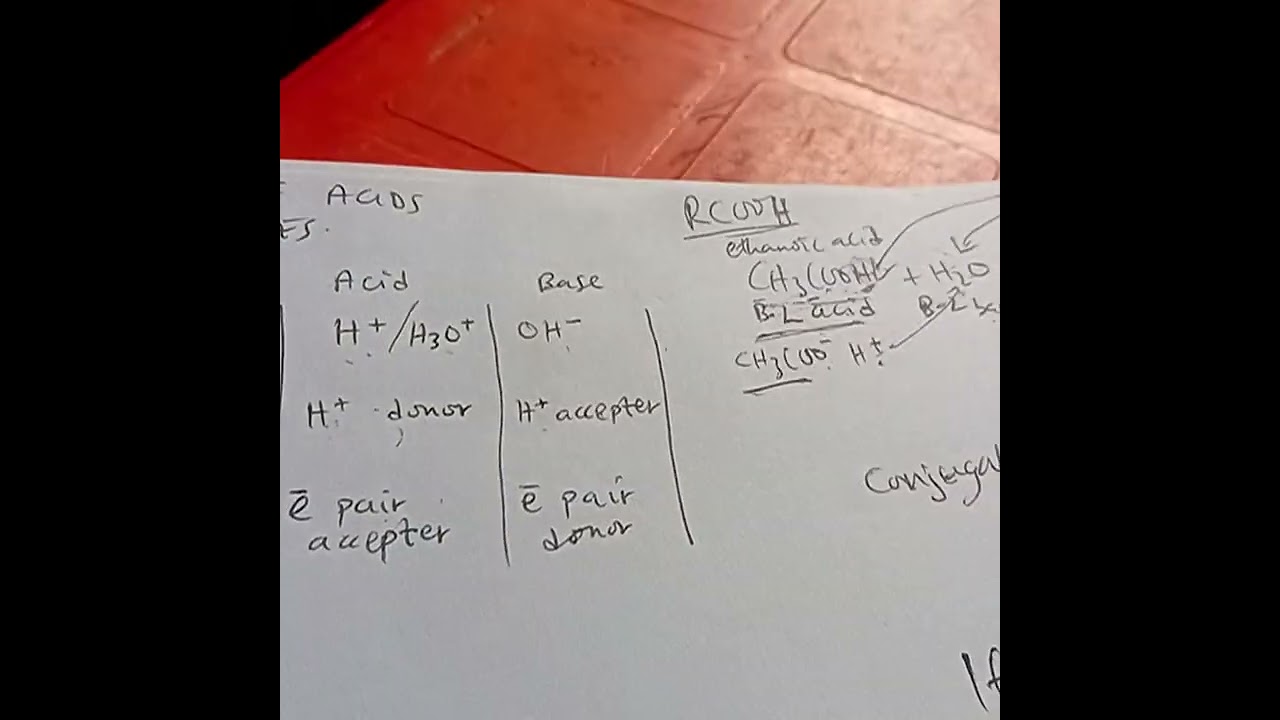 ACIDS
ES.
Acid Base
H⁺/H₃O⁺ OH⁻
H⁺ donor H⁺ accepter
ē pair accepter
ē pair donor
RCOOH
ethanoic acid
CH₃COOH + H₂O
B-L acid B-L
CH₃COO⁻ H⁺
Conjuga